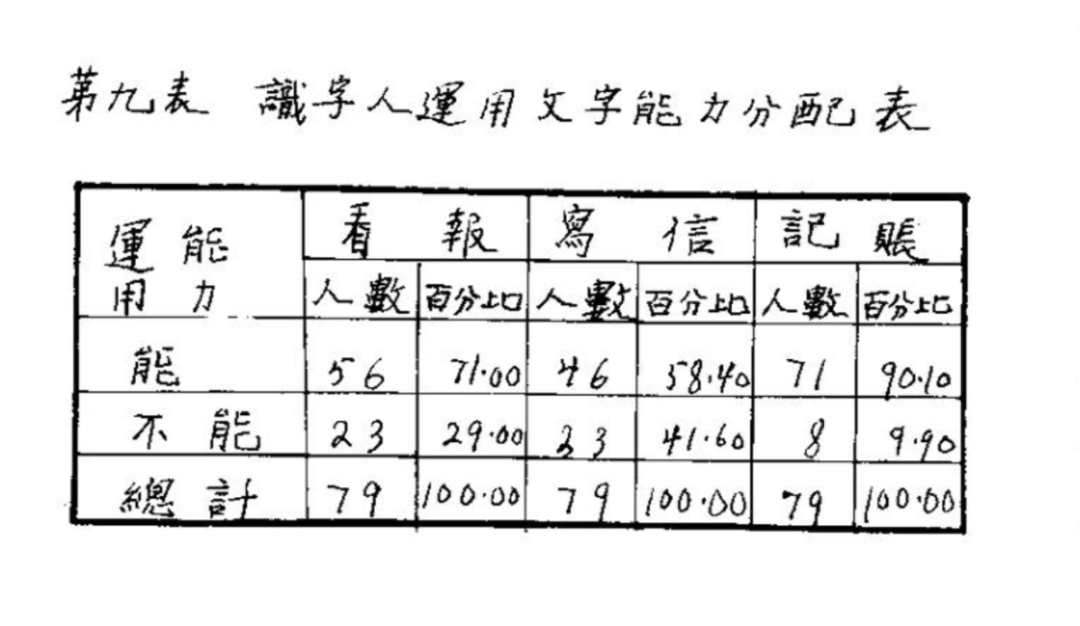 第九表 識字人運用文字能力分配表
運用能力 看報 寫信 記賬
人數 百分比 人數 百分比 人數 百分比
能 56 71.00 46 58.40 71 90.10
不能 23 29.00 33 41.60 8 9.90
總計 79 100.00 79 100.00 79 100.00